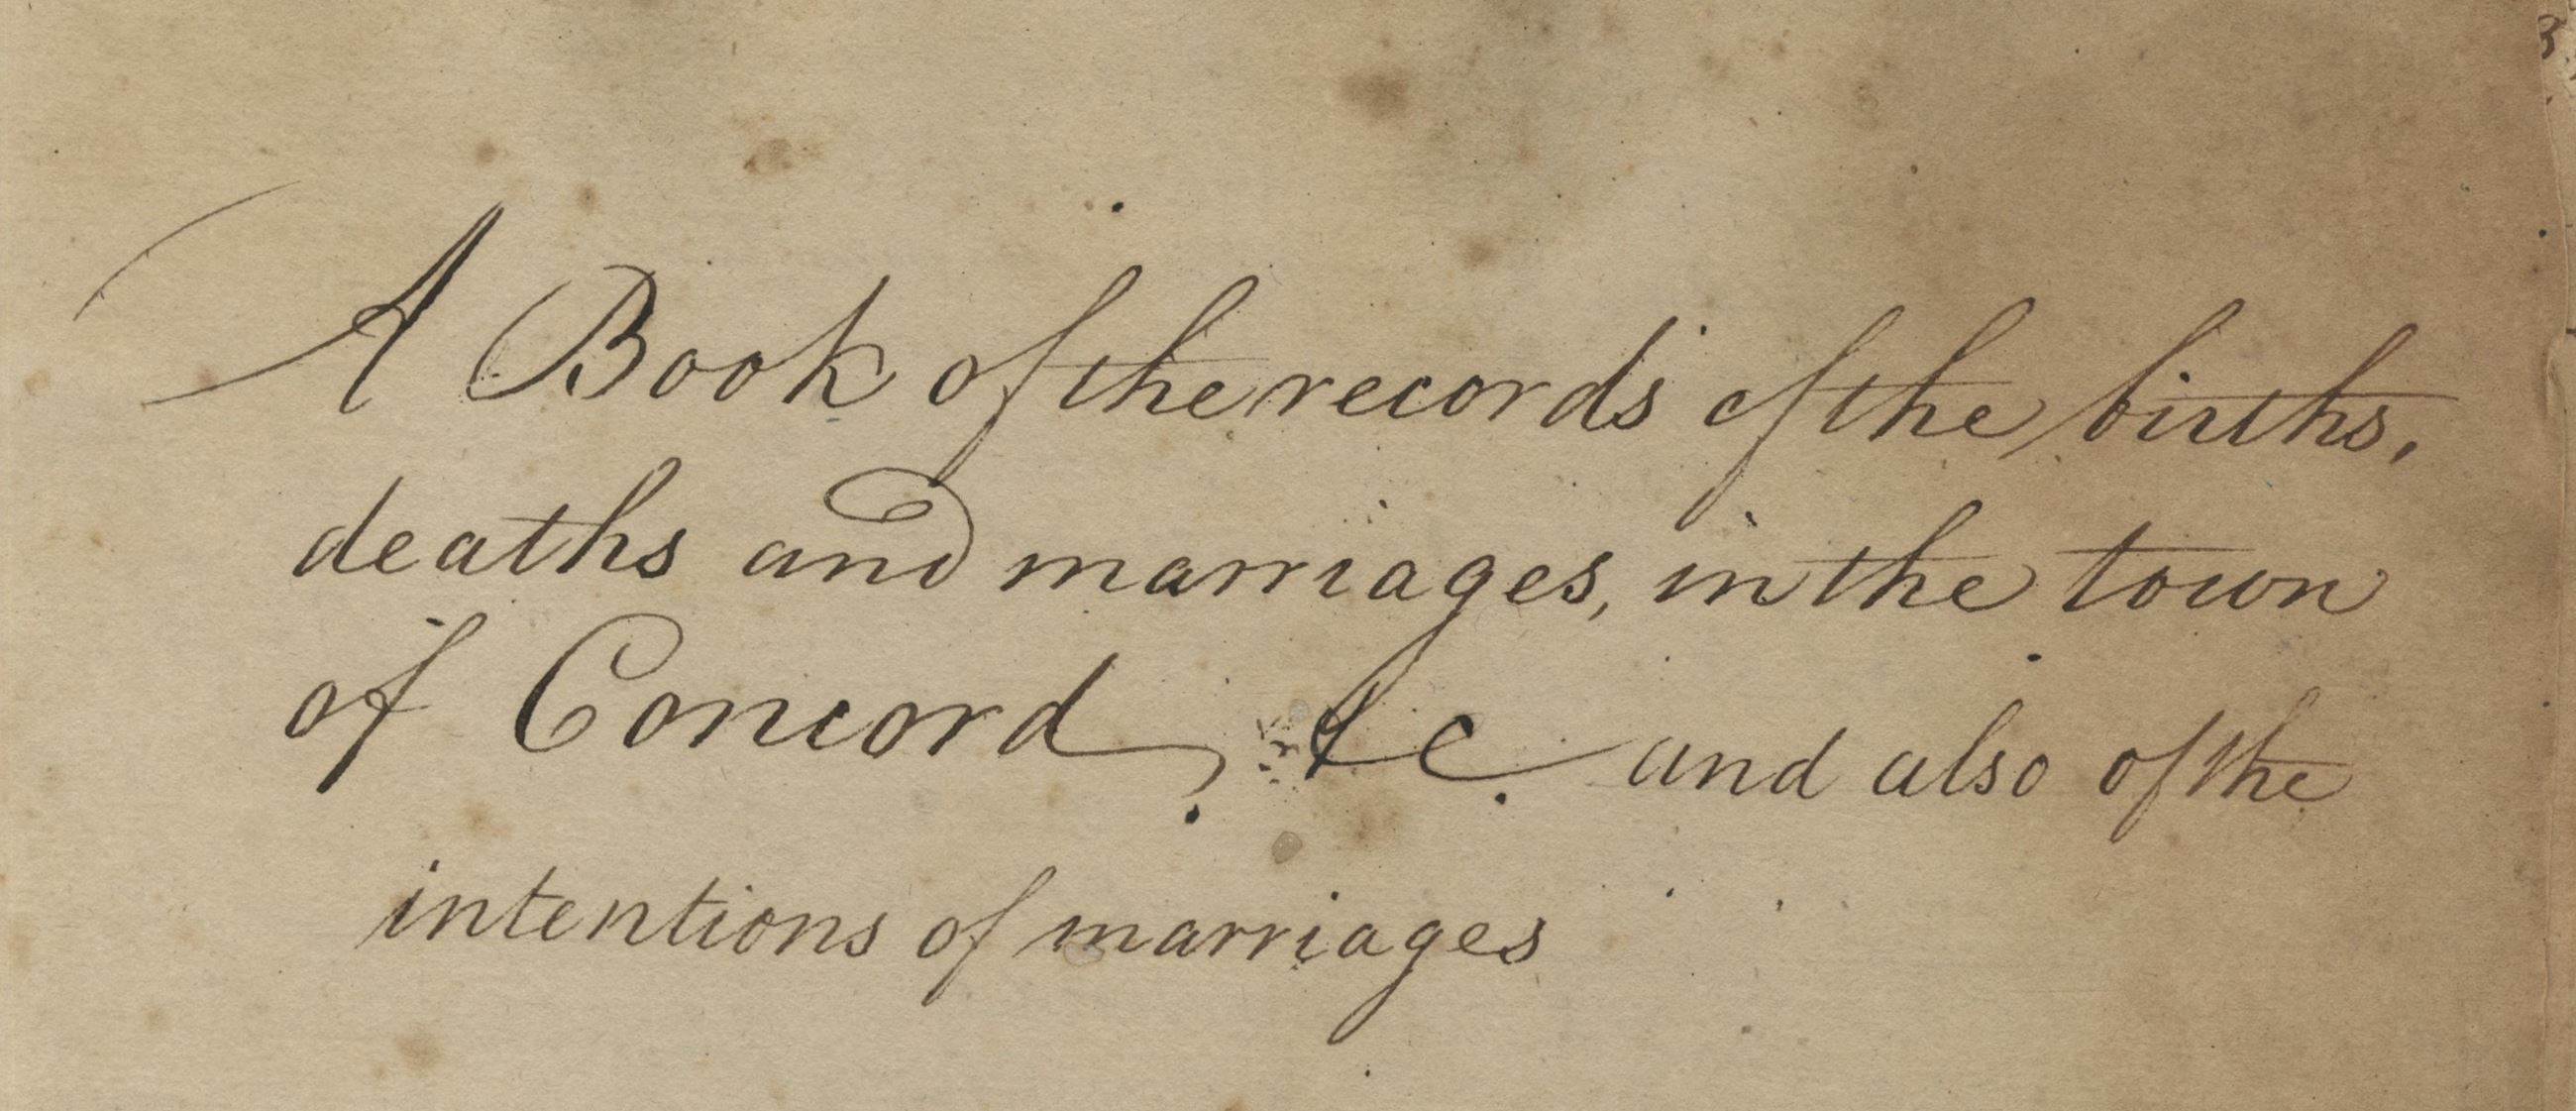 A Book of the records of the births,
deaths and marriages, in the town
of Concord, &c. and also of the
intentions of marriages